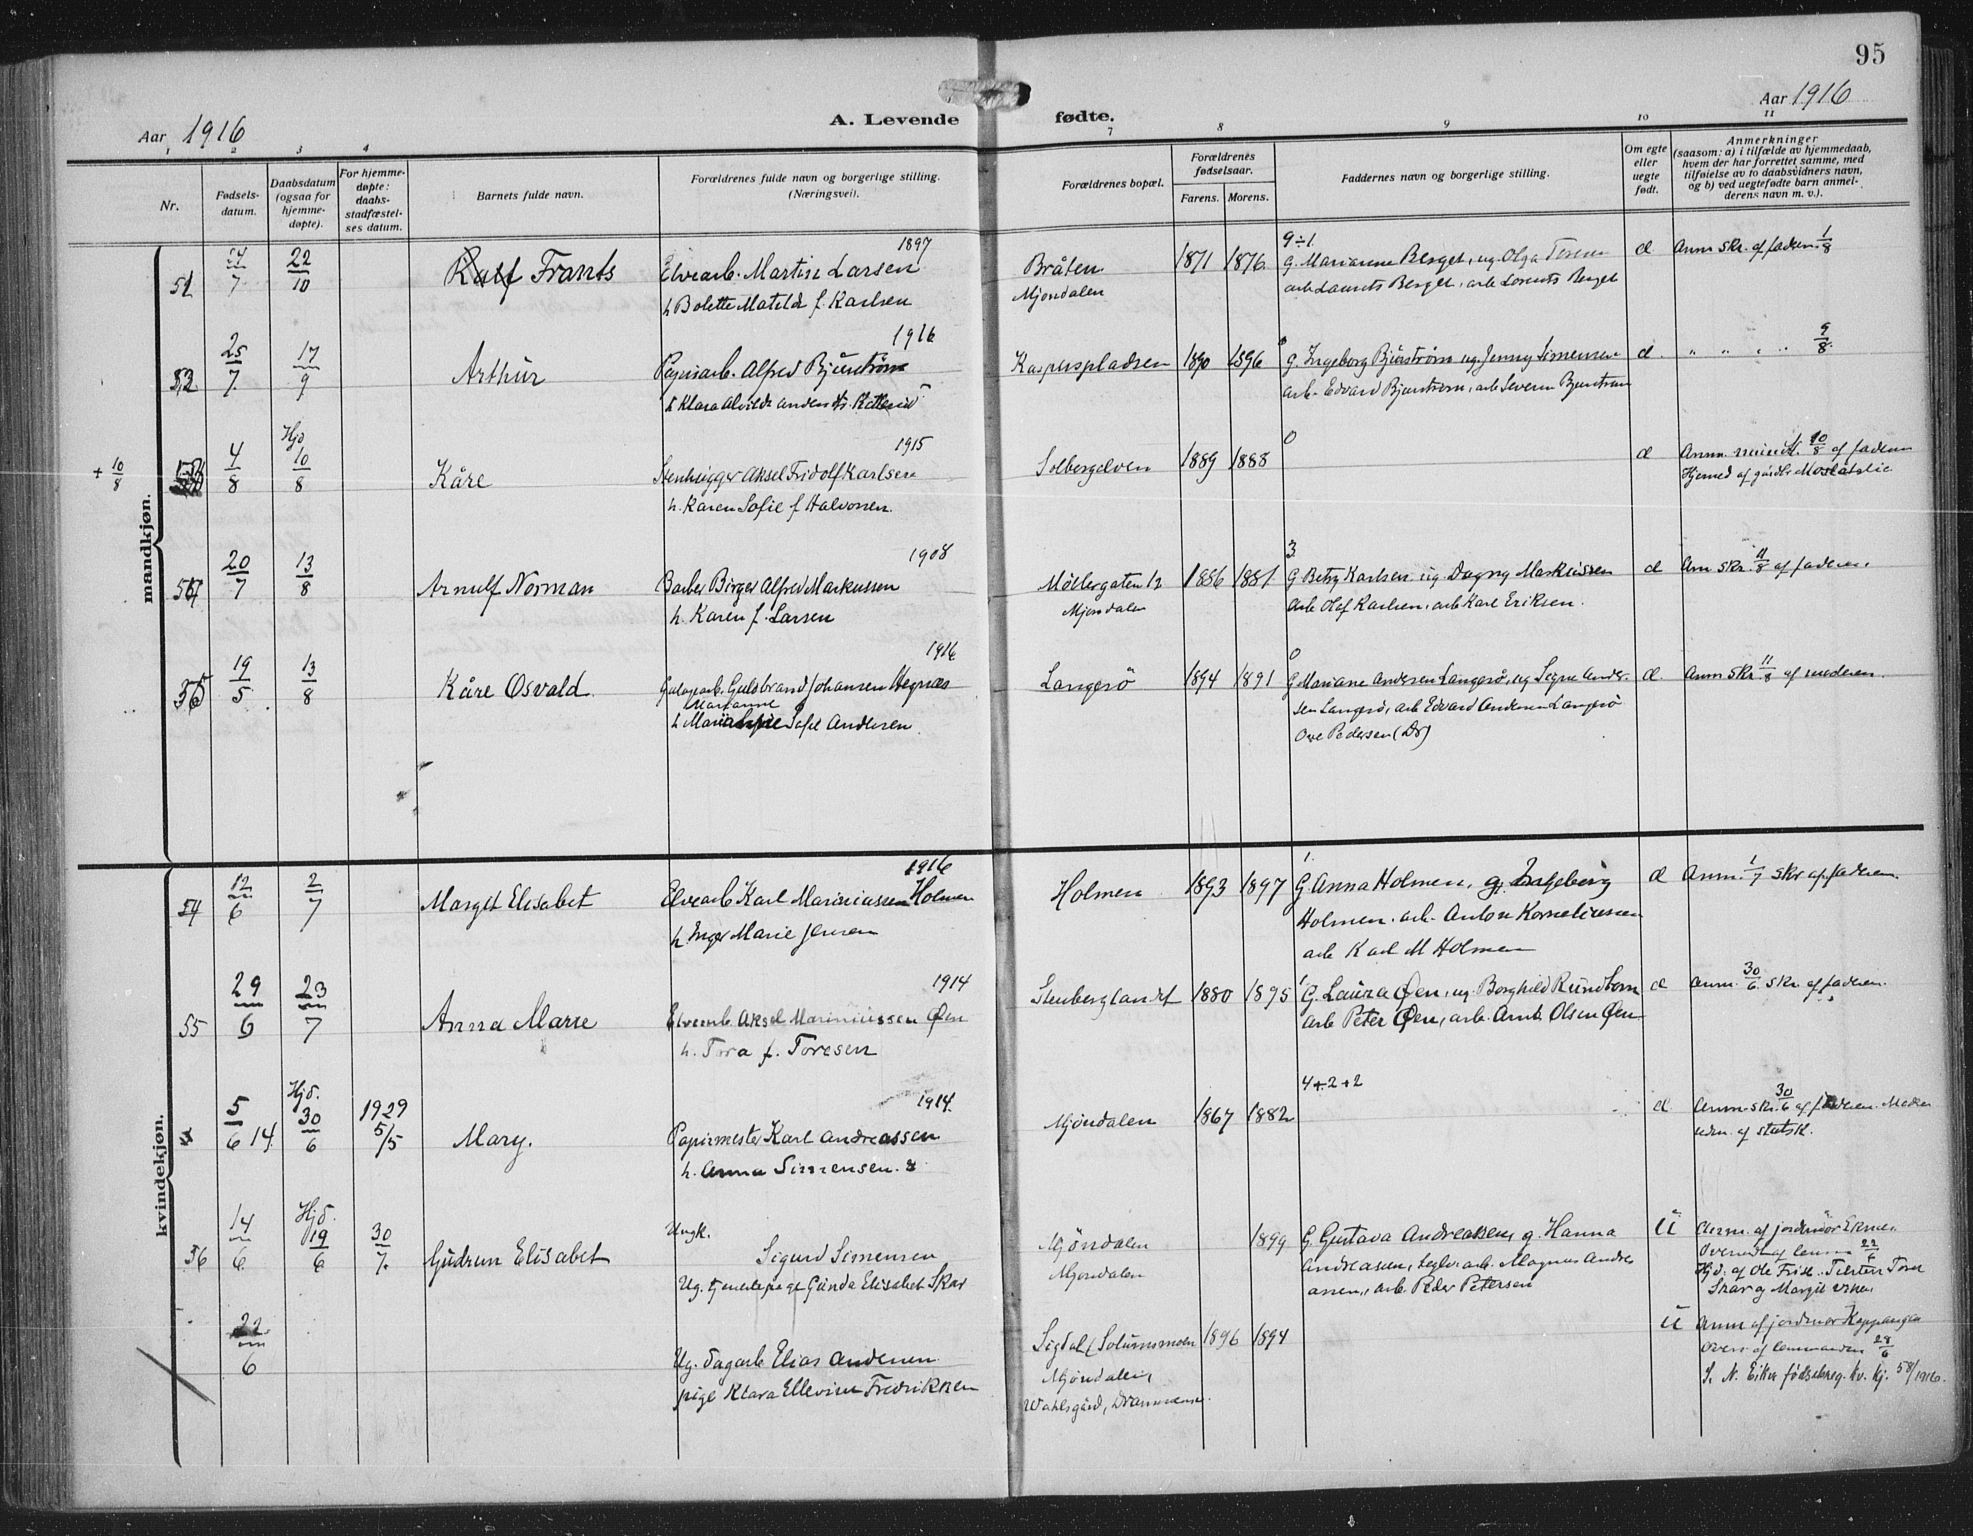 95
Aar 1916
A. Levende
fødte.
Aar 1916
1 2 3 4 7 8 9 10 11
Nr.
Fødsels-
datum.
Daabsdatum
(ogsaa for
hjemme-
døpte).
For hjemme-
døpte:
daabs-
stadfæstel-
ses datum.
Barnets fulde navn.
Forældrenes fulde navn og borgerlige stilling.
(Næringsvei).
Forældrenes bopæl.
Forældrenes
fødselsaar.
Farens. Morens.
Faddernes navn og borgerlige stilling.
Om egte
eller
uegte
født.
Anmerkninger
(saasom: a) i tilfælde av hjemmedaab,
hvem der har forrettet samme, med
tilføielse av to daabsvidners navn,
og b) ved uegtefødte barn anmel-
derens navn m. v.).
mandkjøn.
51
7
22/10
Frants
1897
Elvearb. Martin Larsen
h Bolette Matilde f. Karlsen
Bråten
Mjondalen
1871 1876
9÷1
g. Marianne Berget, ug. Olga
arb Laurits Berget, arb Lorents Berget
d
Anm skr. af faderen 1/8
52
25/7
17/9
Arthur
1916
Papirarb. Alfred Bjurstrøm
h Klara Alvilde
Kasperspladsen
1890 1896
0
G. Ingeborg Bjurstrøm ug. Jenny Simensen
arb. Edvard Bjurstrøm, arb Severin Bjurstrøm
d
" " " " 9/8
+ 10/8
4/8
Hjd
10/8
Kåre
1915
Stenhugger Aksel Fridolf Karlsen
h. Karen Sofie f Halvorsen.
Solbergelven
1889 1888
0
d
Anm. mundtl. 10/8 af faderen
Hjemed af
20/7
13/8
Arnulf Norman
1908
Barber Birger Alfred Markussen
h. Karen f. Larsen
Møllergaten 12
Mjondalen
1886 1881
3
G Betzy Karlsen ug. Dagny Markussen
arb Olaf Karlsen, arb Karl Eriksen.
d
Anm skr. 11/8 af faderen.
19/5
13/8
Kåre Osvald
1916
Gulbrand Johansen Hegnæs
Marianne
h Sofie Andersen
Langesø
1894 1891
0
G Mariane Andersen Langesø, ug Signe Ander-
sen Langesø, arb Edvard Andersen Langesø
Ove Pedersen (Ds)
d
Anm skr 11/8 af moderen.
kvindekjøn.
54
12/6
2/7
Margit Elisabet
1916
Elvearb Karl Mariniussen Holmen
h. Inger Marie Jensen
Holmen
1893 1897
1
G. Anna Holmen, g. Ingeborg
Holmen. arb. Anton Korneliussen
arb Karl M Holmen
d
Anm. 1/7 skr af faderen.
55
29/6
23/7
Anna Marie
1914
Elvearb. Aksel Mariniussen Øen
h. Tora f. Toresen
Stenberglandet
1880 1895
1
G. Laura Øen, ug. Borghild Rundtom
arb Peter Øen, arb. Arnt Olsen Øen
d
Anm. 30/6 skr af faderen.
5/6 14
Hjd.
30/6
1929
5/5
Mary.
1914
Papirmester Karl Andreassen
h. Anna Simensen.
Mjøndalen
1867 1882
4+2+2
d
Anm. skr. 30/6 af faderen. Meden
uden. af statsk.
56
14/6
Hjd.
19/6
30/7.
Gudrun Elisabet
Ungk.
Sigurd Simensen
Ug. tjenestepige Gunda Elisabet Skar
Mjøndalen
Mjøndalen
1899
G. Gustava Andreassen, g. Hanna
Andreasen, arb. Magnus Andre
assen, arb. Peder Petersen
U
Anm. af jordmor
22/6
Hjd. af Ole Frise.
Skar og Margit
22/6
Ug. dagarb Elias Andersen
pige Klara Ellevine Fredriksen
Sigdal (Solumsmoen
Mjøndalen,
Wahlsgård, Drammen
1896 1894
U
Anm af jordmor
28/6
S. N. Eiker fødselsreg. kv. kj. 58/1916.